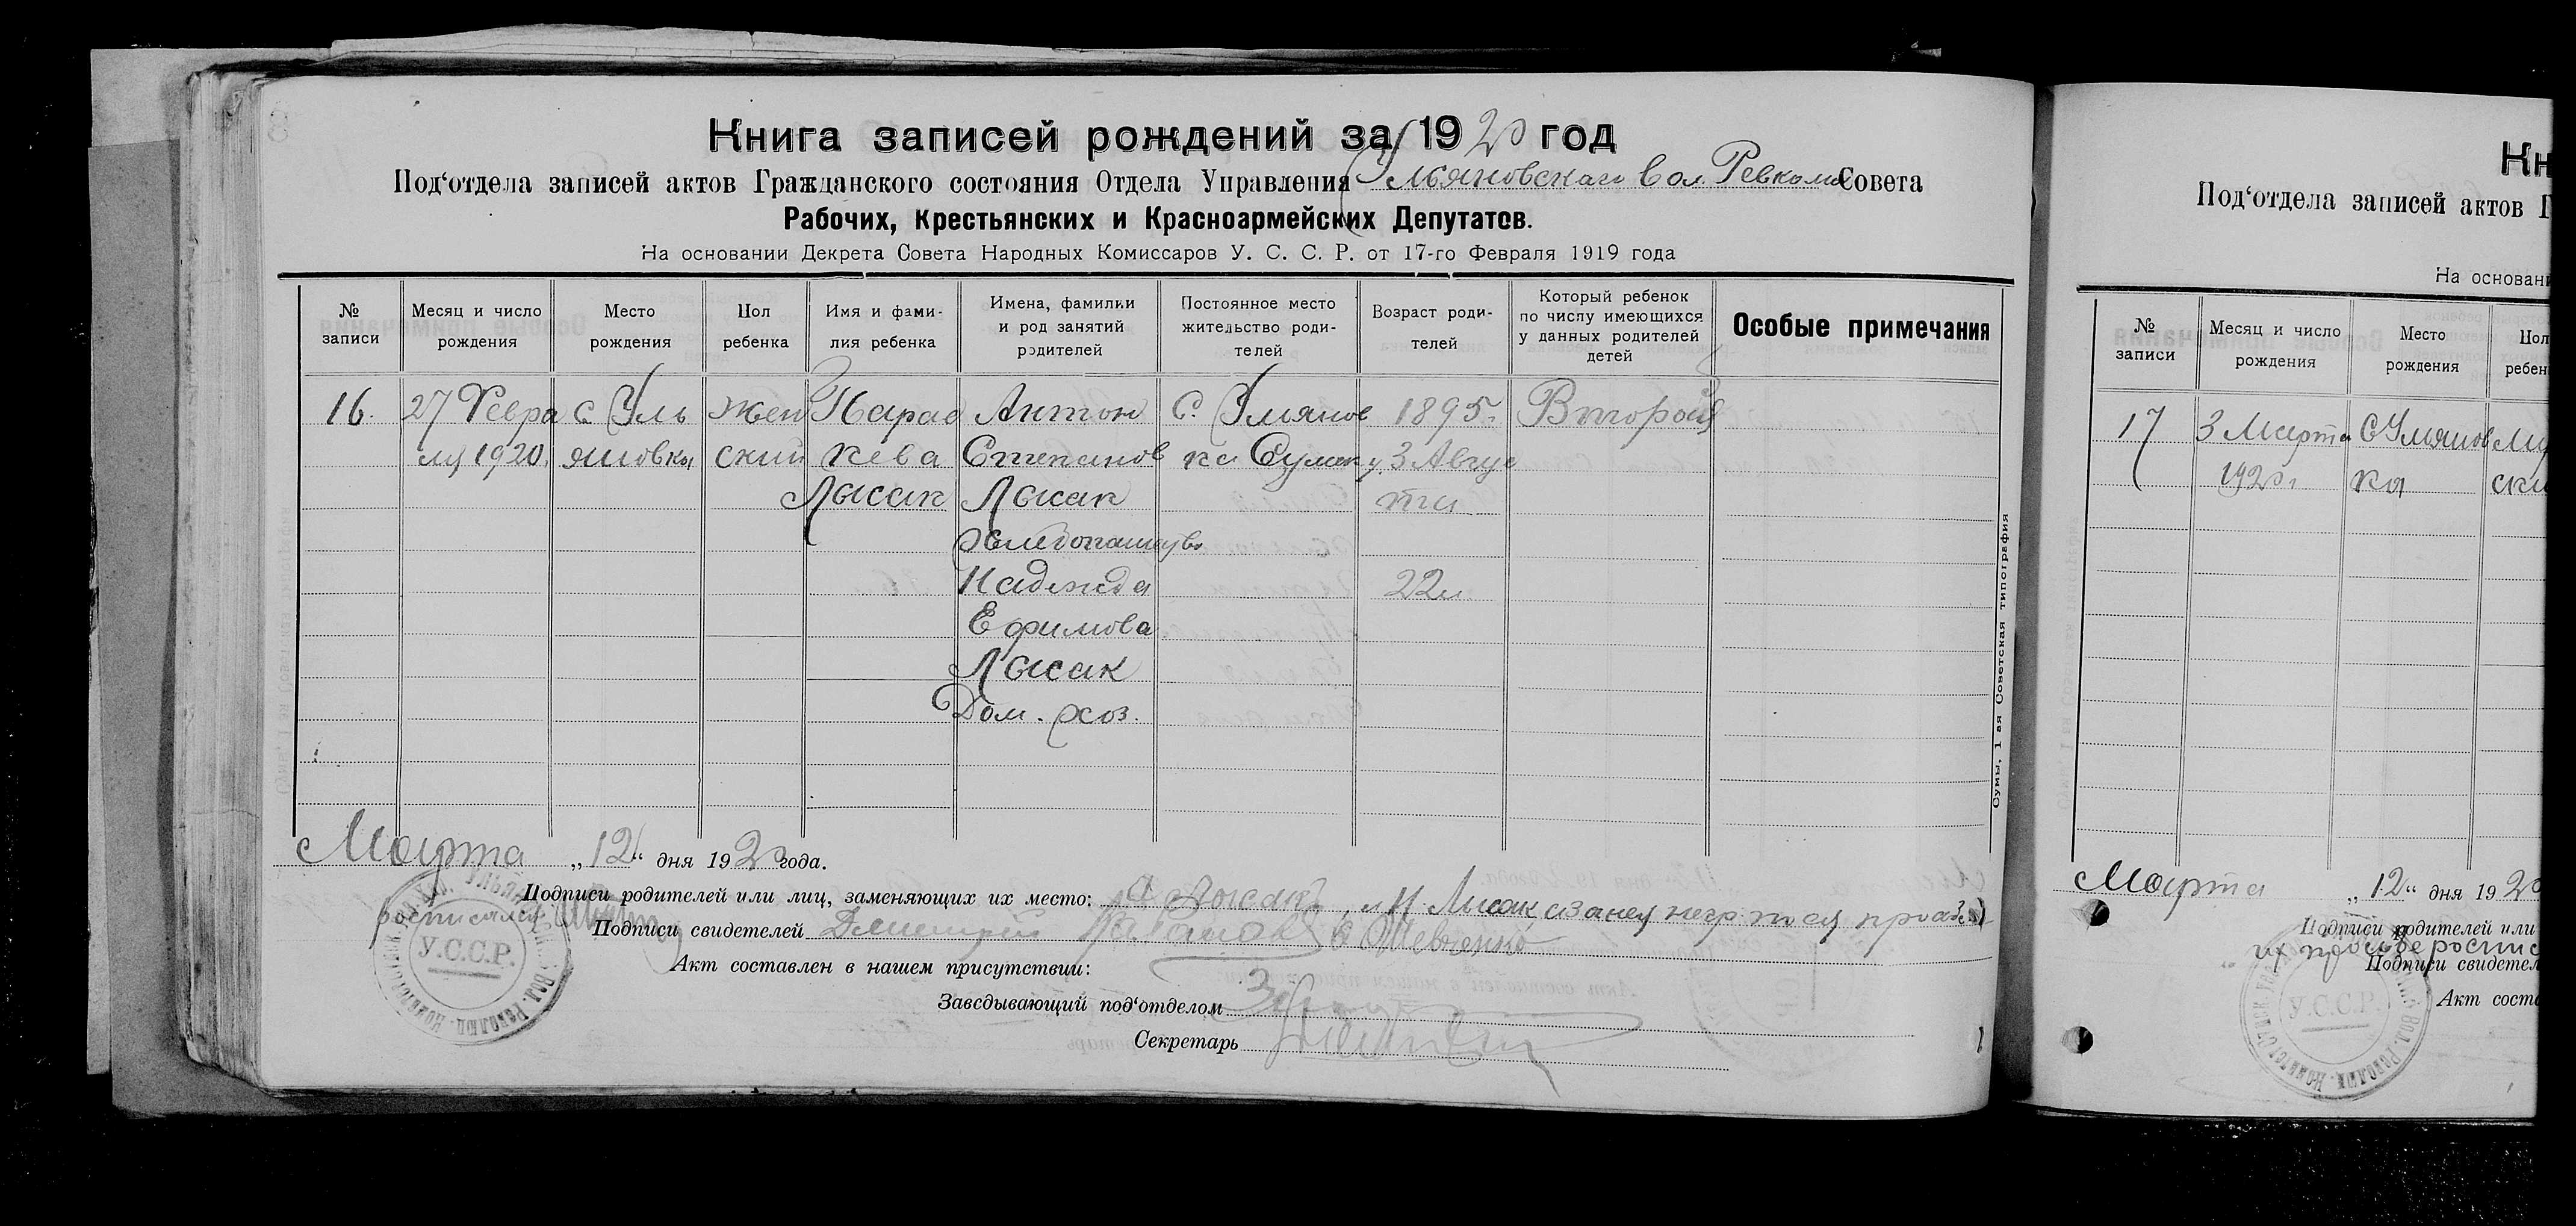 Книга записей рождений за 1920 год
Под‘отдела записей актов Гражданского состояния Отдела Управления Ульяновскаго Вол Ревкома Совета
Рабочих, Крестьянских и Красноармейских Депутатов.
На основании Декрета Совета Народных Комиссаров У. С. С. Р. от 17-го Февраля 1919 года
№ записи
Месяц и число рождения
Место рождения
Пол ребенка
Имя и фами-
лия ребенка
Имена, фамилии
и род занятий
родителей
Постоянное место
жительство роди-
телей
Возраст роди-
телей
Который ребенок
по числу имеющихся
у данных родителей
детей
Особые примечания
16. 27 Февра с. Уль Жен Парас Антон С. Ульянов 1895 г. Второй
ля 1920. яновка ский кева Степанов ка Сумск у. 3 Авгус
Лысак Лысак та
Хлебопашество
Надежда 22 л.
Ефимова
Лысак
Дом. хоз.
Марта „12“ дня 1920 года.
Подписи родителей или лиц, заменяющих их место: А Лысакъ, и Н Лысак а за нея негр. по ея
росписался
Подписи свидетелей Дмитрий Шевченко
Акт составлен в нашем присутствии:
Заведывающий под‘отделом
Секретарь
У.С.С.Р.
Сумы, 1 ая Советская типография
Кн
Под‘отдела записей актов Г
На основани
№ записи
Месяц и число рождения
Место рождения
Пол
ребен
17 3 Марта С Ульянов Му
1920 г. ка ски
Марта „12“ дня 1920
Подписи родителей или
их просьбе роспис
Подписи свидетел
Акт соста
У.С.С.Р.